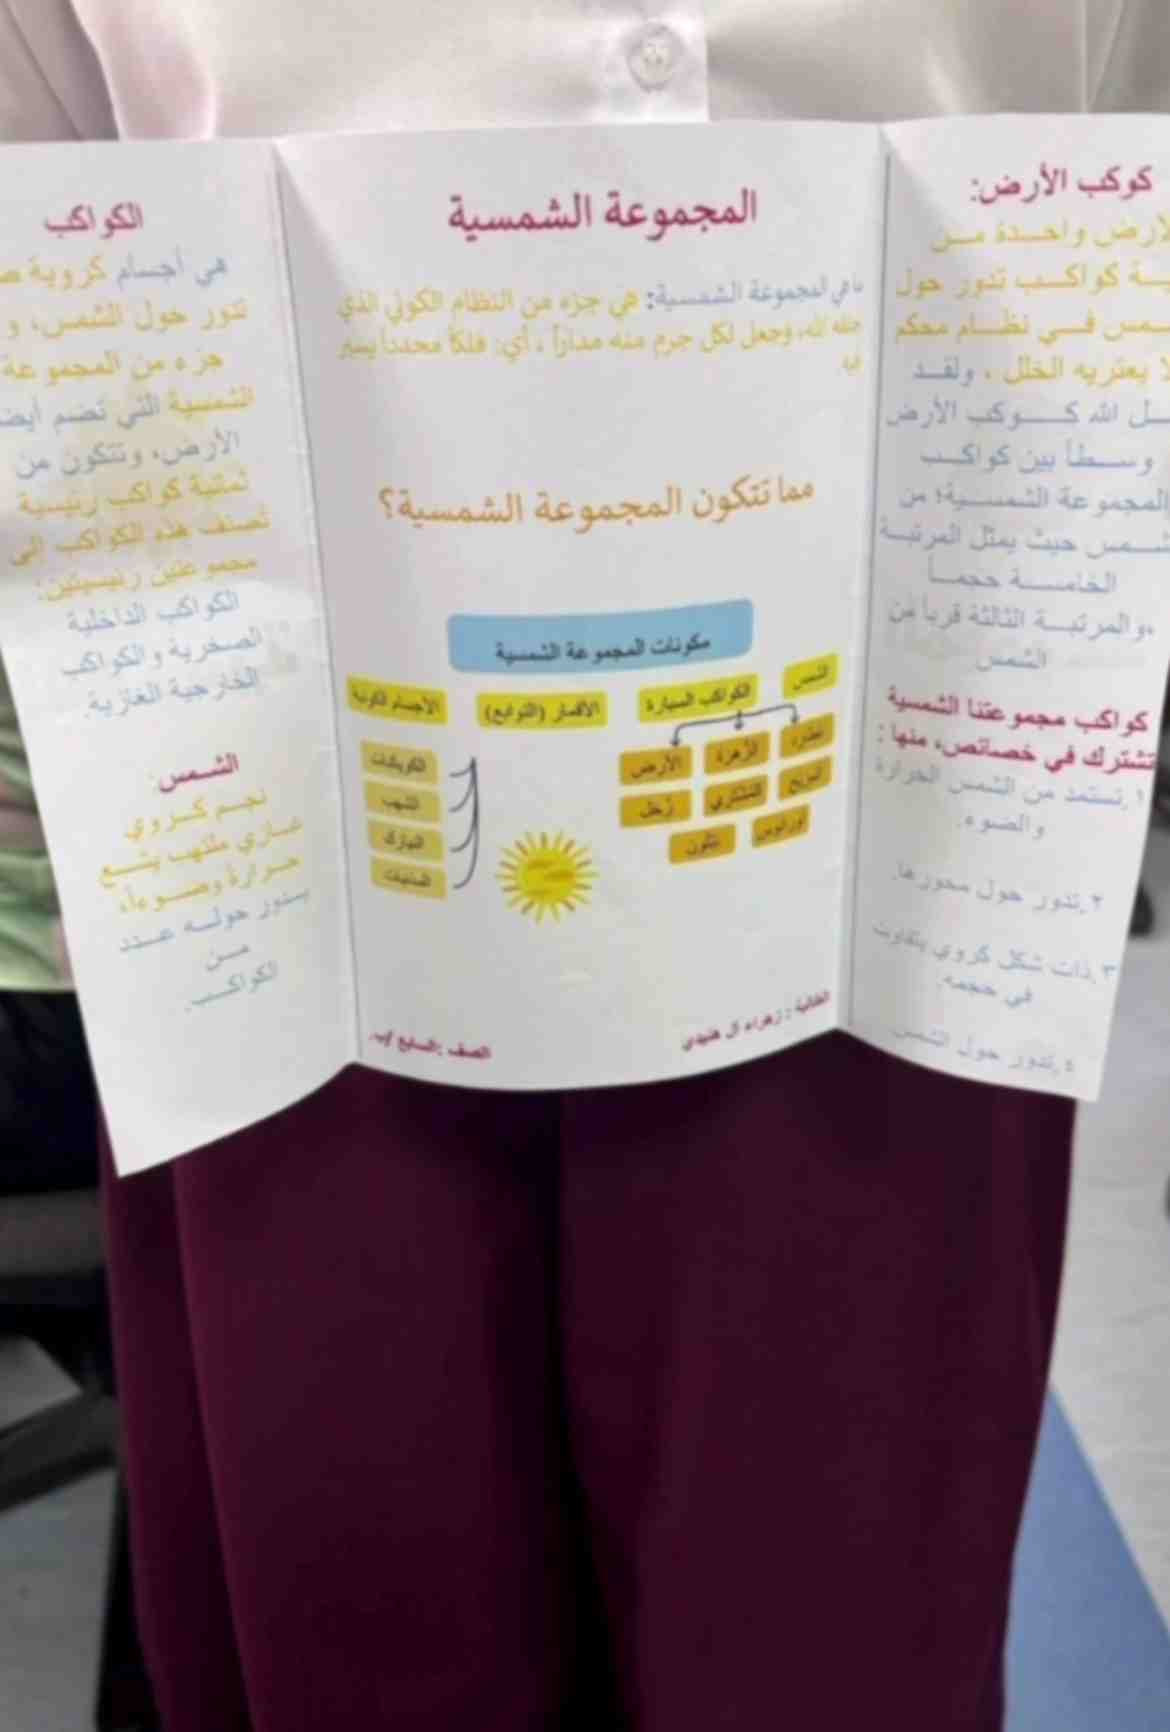 كوكب الأرض:
واحدة من
كواكب تدور حول
في نظام محكم
لا يعتريه الخلل ، ولقد
الله كوكب الأرض
وسطاً بين كواكب
المجموعة الشمسية؛ من
حيث يمثل المرتبة
الخامسة حجماً
والمرتبة الثالثة قرباً من
الشمس
كواكب مجموعتنا الشمسية
تشترك في خصائص، منها :
١.تستمد من الشمس الحرارة
والضوء.
٢.تدور حول محورها.
٣.ذات شكل كروي يتفاوت
في حجمه.
٤.تدور حول الشمس
المجموعة الشمسية
ما هي المجموعة الشمسية: هي جزء من النظام الكوني الذي
خلقه الله، وجعل لكل جرم منه مداراً ، أي: فلكاً محدداً يسير
فيه
مما تتكون المجموعة الشمسية؟
مكونات المجموعة الشمسية
الشمس
الكواكب السيارة
الأقمار (التوابع)
الأجسام الكونية
عطارد
الزهرة
الأرض
المريخ
المشتري
زحل
اورانوس
نبتون
الكويكبات
الشهب
النيازك
المذنبات
الطالبة : زهراء ال هنيدي
الصف :السابع /ب.
الكواكب
هي أجسام كروية
تدور حول الشمس، و
جزء من المجموعة
الشمسية التي تضم
الأرض، وتتكون من
ثمنية كواكب رئيسية
تصنف هذه الكواكب إلى
مجموعتين رئيسيتين:
الكواكب الداخلية
الصخرية والكواكب
الخارجية الغازية.
الشمس:
نجم كروي
غازي ملتهب يشع
حرارة وضوءاً،
يدور حوله عدد
من
الكواكب.